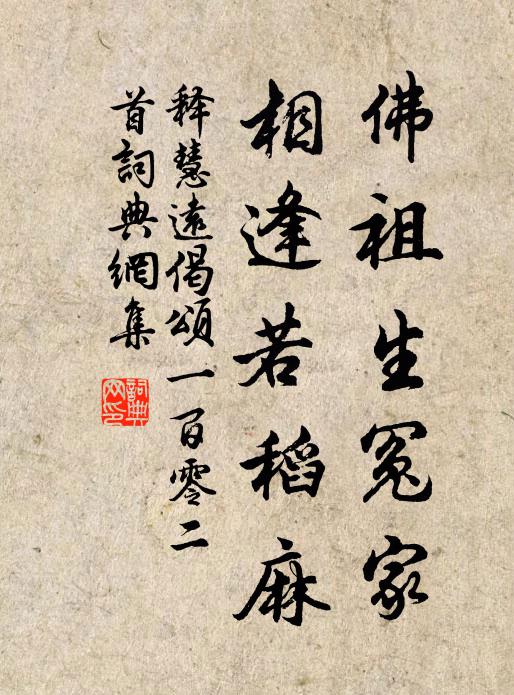 佛祖生冤家
相逢若稻麻
释慧遠偈頌一百零二
首詞典網集
詞典
网印